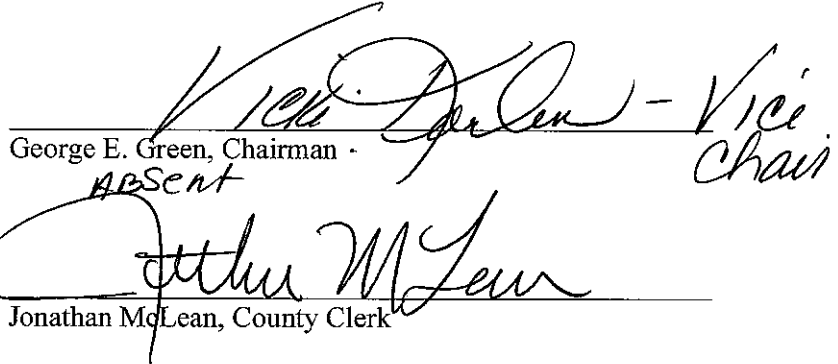 Vicki - Vice
Chair
George E. Green, Chairman
ABSent
Jonathan McLean
Jonathan McLean, County Clerk